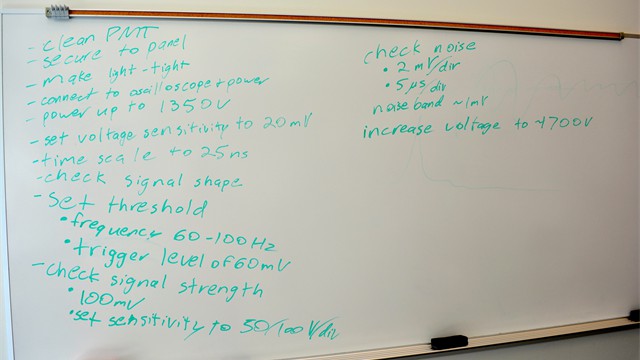 - clean PMT
- secure to panel
- make light-tight
- connect to oscilloscope + power
- power up to 1350V
- set voltage sensitivity to 20mV
- time scale to 25ns
- check signal shape
- set threshold
• frequency 60-100Hz
• trigger level of 60mV
- check signal strength
• 100mV
• set sensitivity to 50/100 V/div
check noise
• 2 mV/div
• 5 µs/div
noise band ~1mV
increase voltage to ~1700V